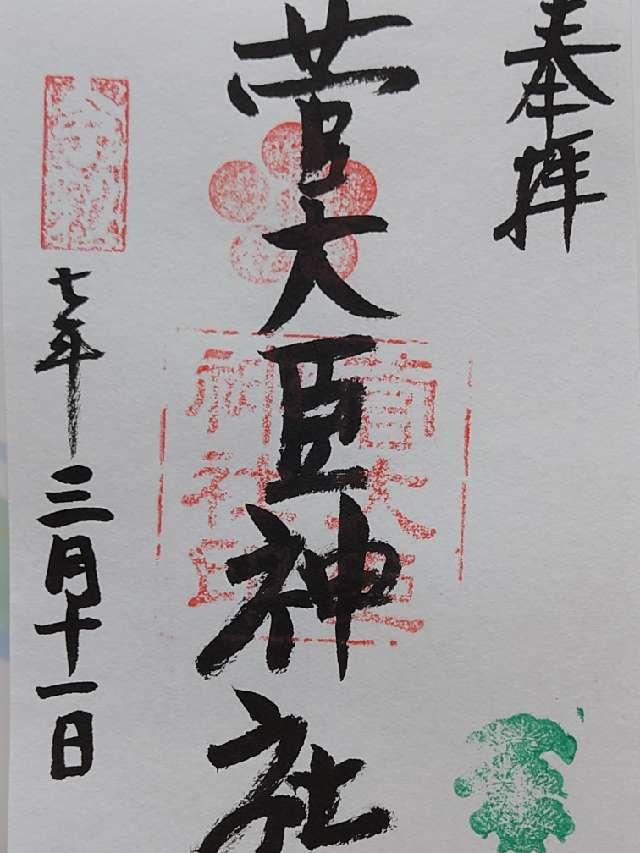 奉拝
菅大臣神社
菅大臣
神社印
七年三月十一日